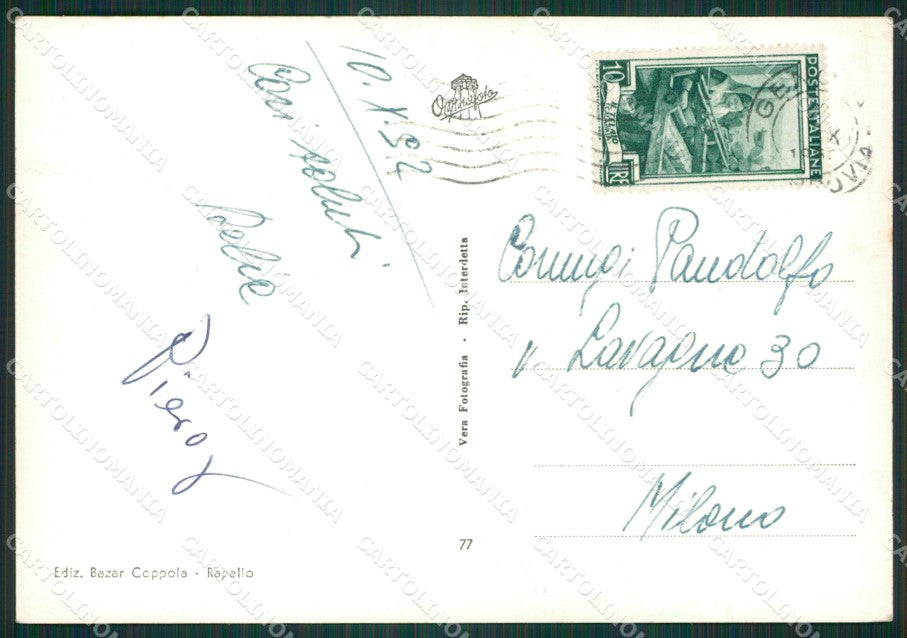 10.X.52
Cari saluti
Piero
Ediz. Bazar Coppola - Rapallo
Vera Fotografia - Rip. Interdetta
77
10
LIRE
POSTE ITALIANE
Coniugi Pandolfo
v Lavagna 30
Milano
CARTOLINOMANIA